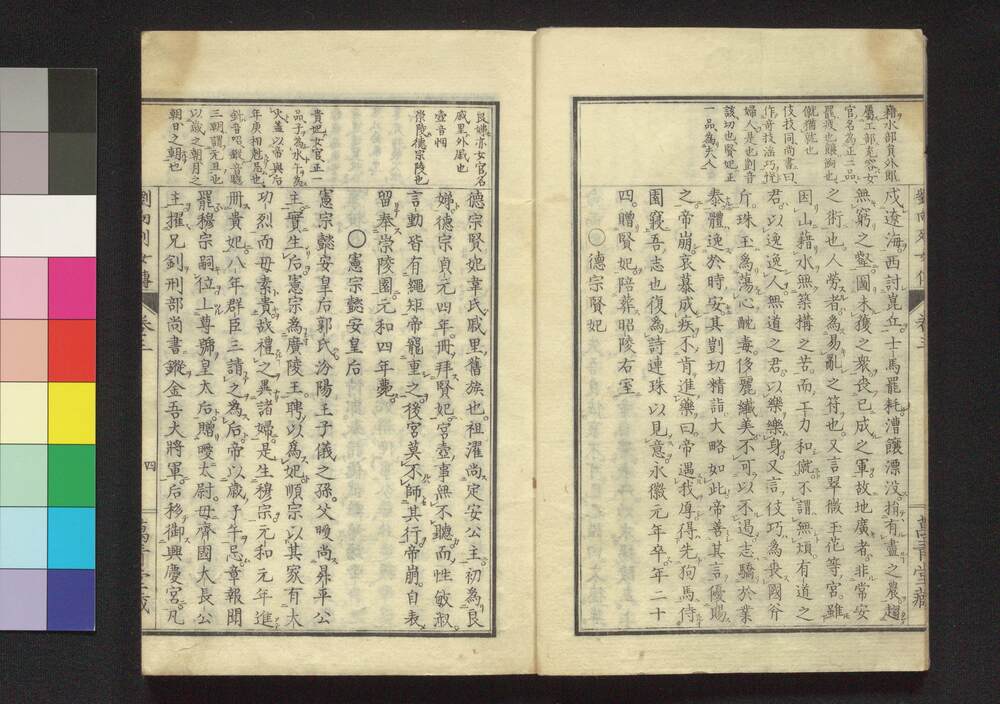 戍遼海西討崑丘士馬罷耗漕饟漂沒捐有盡之農趨
無窮之壑圖未獲之衆喪已成之軍故地廣者非常安
之術也人勞者為易亂之符也又言翠微玉花等宮雖
因山藉水無築構之苦而工力和僦不謂無煩有道之
君以逸逸人無道之君以樂樂身又言伎巧為喪國斧
斤珠玉為蕩心酖毒侈麗纖美不可以不遏志驕於業
泰體逸於時安其剴切精詣大略如此帝善其言優賜
之帝崩哀慕成疾不肯進藥曰帝遇我厚得先狗馬侍
園寢吾志也復為詩連珠以見意永徽元年卒年二十
四贈賢妃陪葬昭陵右室
〇德宗賢妃
藉水部員外郎
屬工部充容女
官名為正二品
罷疲也
僦猶雇也
伎技同尚書曰
作奇技淫巧悅
婦人是也剴音
該切也賢妃正
一品為夫人
德宗賢妃韋氏戚里舊族也祖濯尚定安公主初為良
娣德宗貞元四年冊拜賢妃宮壼事無不聽而性敏淑
言動皆有繩矩帝寵重之後宮莫不師其行帝崩自表
留奉崇陵園元和四年薨
〇憲宗懿安皇后
憲宗懿安皇后郭氏汾陽王子儀之孫父曖尚昇平公
主實生后憲宗為廣陵王聘以為妃順宗以其家有大
功烈而母素貴故禮之異諸婦是生穆宗元和元年進
冊貴妃八年群臣三請之為后帝以歲子午忌章報聞
罷穆宗嗣位上尊號皇太后贈曖太尉母齊國大長公
主擢兄釗刑部尚書鏦金吾大將軍后移御興慶宮凡
良娣亦女官名
戚里外戚也
壼音悃
崇陵德宗陵也
貴妃女官正一
品子為水午為
火蓋以帝與后
年庚相尅忌也
釗音昭鏦音聰
三朝謂元旦也
以歲之朝月之
朝日之朝也
劉向列女傳
卷三
四
萬青堂藏